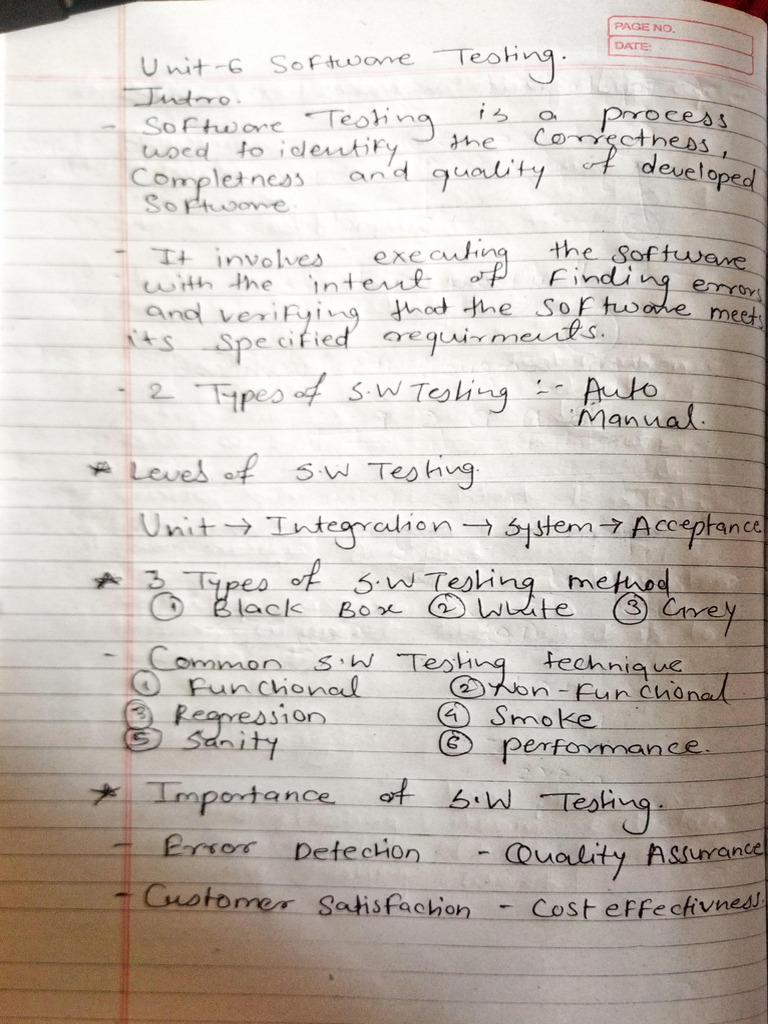 PAGE NO.
DATE:
Unit-6 Software Testing.
Intro.
- Software Testing is a process
used to identify the Correctness,
Completness and quality of developed
Software.
- It involves executing the software
with the intent of Finding errors
and verifying that the software meets
its specified requirments.
- 2 Types of S.W Testing :- Auto
Manual.
* Level of S.W Testing.
Unit → Integration → System → Acceptance
* 3 Types of S.W Testing method
① Black Box ② White ③ Grey
- Common S.W Testing technique
① Functional ② Non-Functional
③ Regression ④ Smoke
⑤ Sanity ⑥ performance.
* Importance of S.W Testing.
- Error Detection - Quality Assurance
- Customer Satisfaction - Cost effectivness.